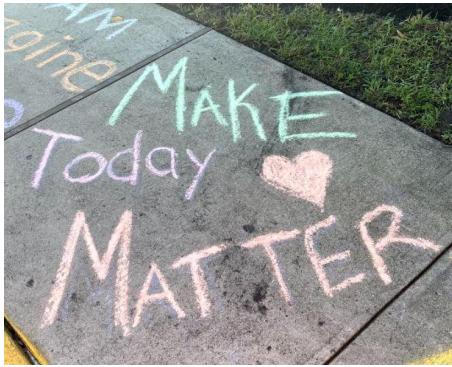 AM
agine
MAKE
Today
MATTER